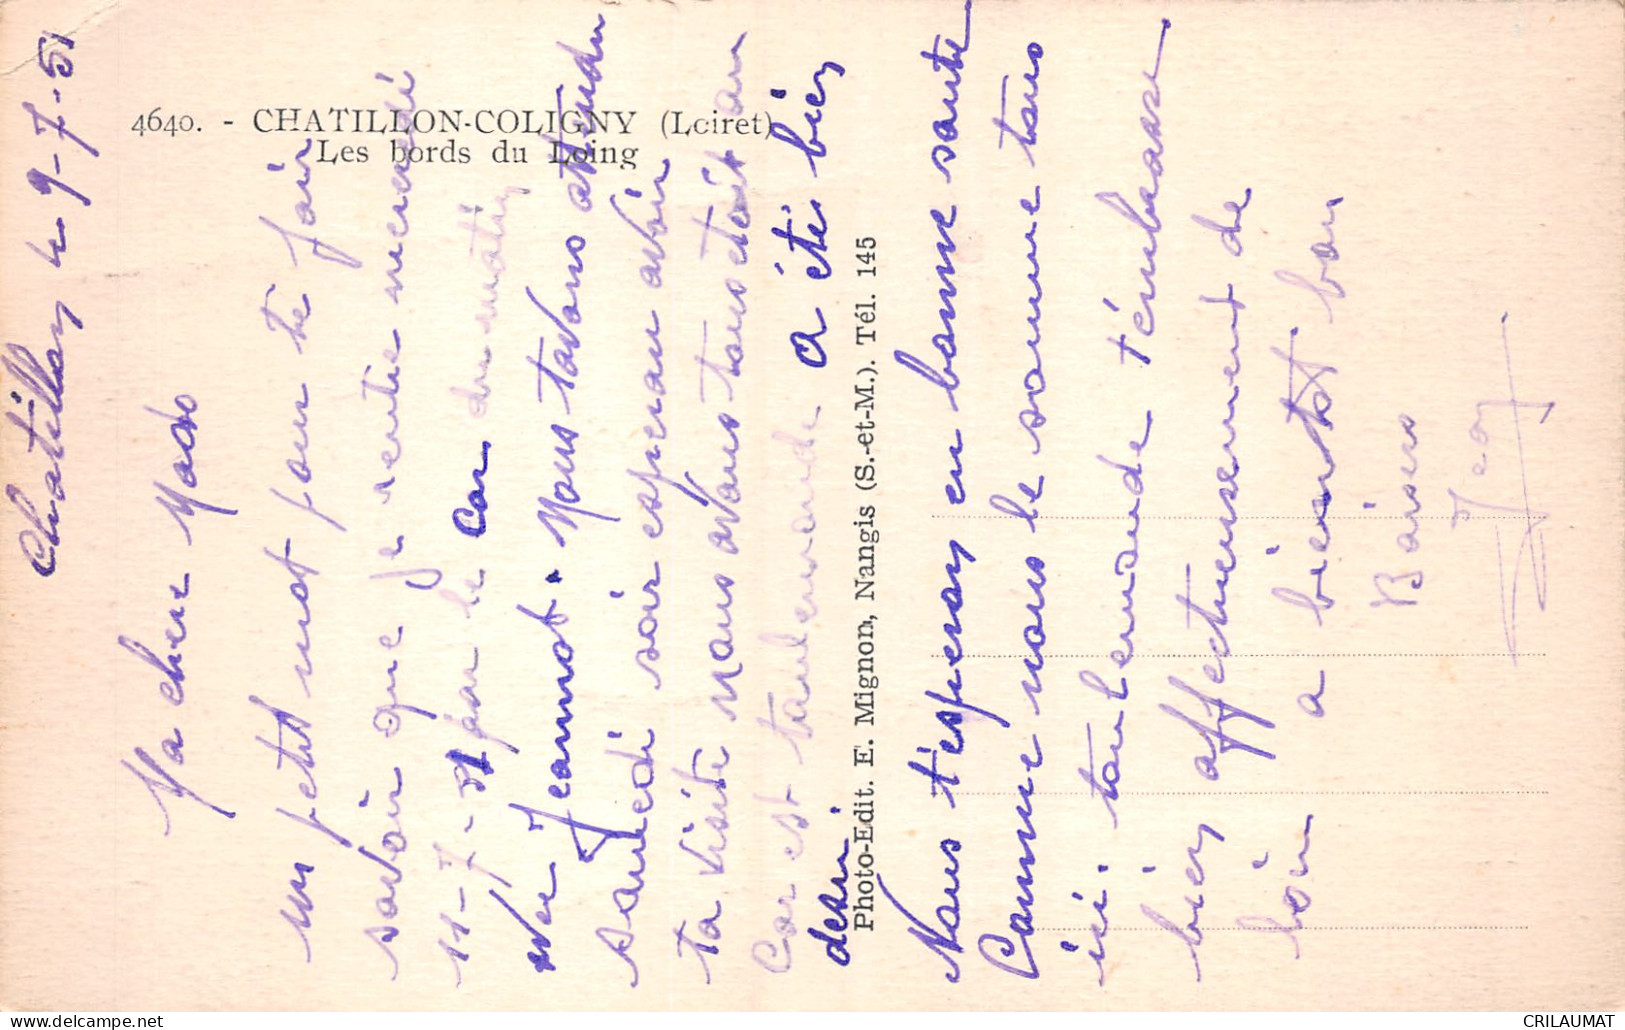 4640. - CHATILLON-COLIGNY (Loiret)
Les bords du Loing
Photo-Edit. E. Mignon, Nangis (S.-et-M.). Tél. 145
Chatillon le 9-7-51
Ma chère Mado
un petit mot pour te fair
savoir que je rentre mercredi
11-7-51 par le car du matin
avec Jeannot. Nous tavons attendu
samedi soir esperan avoir
ta visite nous avons tous était
Car est toulemonde a été bien
desu.
Nous t'esperon en bonne santé
Comme nous le somme tous
ici. toulemonde t'embrasse
bien affectueusement de
loin a bientot bon
Baisers
Jean
www.delcampe.net
CRILAUMAT